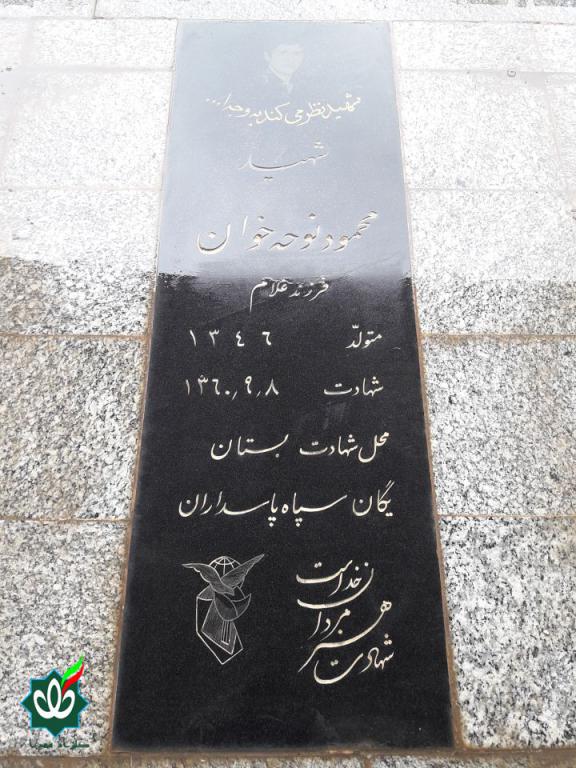 شهید نظر می کند به وجه ا...
شهید
محمود نوحه خوان
فرزند غلام
متولّد ۱۳۴۶
شهادت ۱۳۶۰٫۹٫۸
محل شهادت بستان
یگان سپاه پاسداران
شهادت
هنر
مردان
خداست